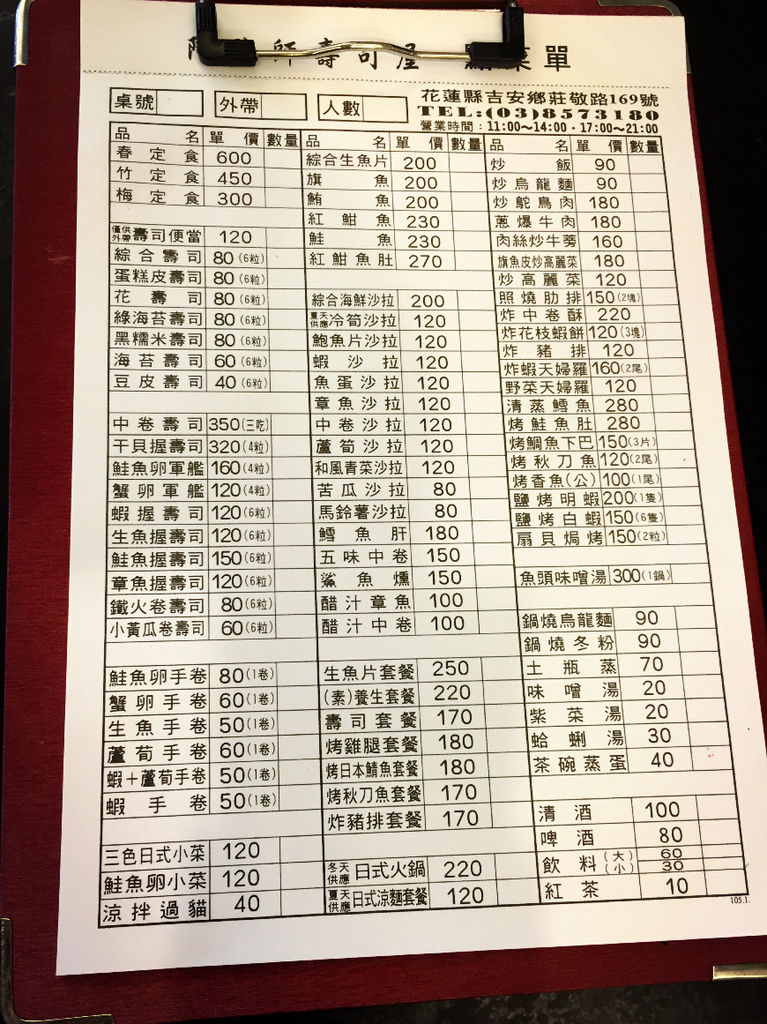 師壽司屋 點菜單
桌號 外帶 人數
花蓮縣吉安鄉莊敬路169號
TEL:(03)8573180
營業時間：11:00～14:00・17:00～21:00
品名 單價 數量
春定食 600
竹定食 450
梅定食 300
僅供外帶 壽司便當 120
綜合壽司 80(6粒)
蛋糕皮壽司 80(6粒)
花壽司 80(6粒)
綠海苔壽司 80(6粒)
黑糯米壽司 80(6粒)
海苔壽司 60(6粒)
豆皮壽司 40(6粒)
中卷壽司 350(三吃)
干貝握壽司 320(4粒)
鮭魚卵軍艦 160(4粒)
蟹卵軍艦 120(4粒)
蝦握壽司 120(6粒)
生魚握壽司 120(6粒)
鮭魚握壽司 150(6粒)
章魚握壽司 120(6粒)
鐵火卷壽司 80(6粒)
小黃瓜卷壽司 60(6粒)
鮭魚卵手卷 80(1卷)
蟹卵手卷 60(1卷)
生魚手卷 50(1卷)
蘆筍手卷 60(1卷)
蝦＋蘆筍手卷 50(1卷)
蝦手卷 50(1卷)
三色日式小菜 120
鮭魚卵小菜 120
涼拌過貓 40
品名 單價 數量
綜合生魚片 200
旗魚 200
鮪魚 200
紅魽魚 230
鮭魚 230
紅魽魚肚 270
綜合海鮮沙拉 200
夏天供應 冷筍沙拉 120
鮑魚片沙拉 120
蝦沙拉 120
魚蛋沙拉 120
章魚沙拉 120
中卷沙拉 120
蘆筍沙拉 120
和風青菜沙拉 120
苦瓜沙拉 80
馬鈴薯沙拉 80
鱈魚肝 180
五味中卷 150
鯊魚燻 150
醋汁章魚 100
醋汁中卷 100
生魚片套餐 250
(素)養生套餐 220
壽司套餐 170
烤雞腿套餐 180
烤日本鯖魚套餐 180
烤秋刀魚套餐 170
炸豬排套餐 170
冬天供應 日式火鍋 220
夏天供應 日式涼麵套餐 120
品名 單價 數量
炒飯 90
炒烏龍麵 90
炒鴕鳥肉 180
蔥爆牛肉 180
肉絲炒牛蒡 160
旗魚皮炒高麗菜 180
炒高麗菜 120
照燒肋排 150(2塊)
炸中卷酥 220
炸花枝蝦餅 120(3塊)
炸豬排 120
炸蝦天婦羅 160(2尾)
野菜天婦羅 120
清蒸鱈魚 280
烤鮭魚肚 280
烤鯛魚下巴 150(3片)
烤秋刀魚 120(2尾)
烤香魚(公) 100(1尾)
鹽烤明蝦 200(1隻)
鹽烤白蝦 150(6隻)
扇貝焗烤 150(2粒)
魚頭味噌湯 300(1鍋)
鍋燒烏龍麵 90
鍋燒冬粉 90
土瓶蒸 70
味噌湯 20
紫菜湯 20
蛤蜊湯 30
茶碗蒸蛋 40
清酒 100
啤酒 80
飲料(大) 60
(小) 30
紅茶 10
105.1.